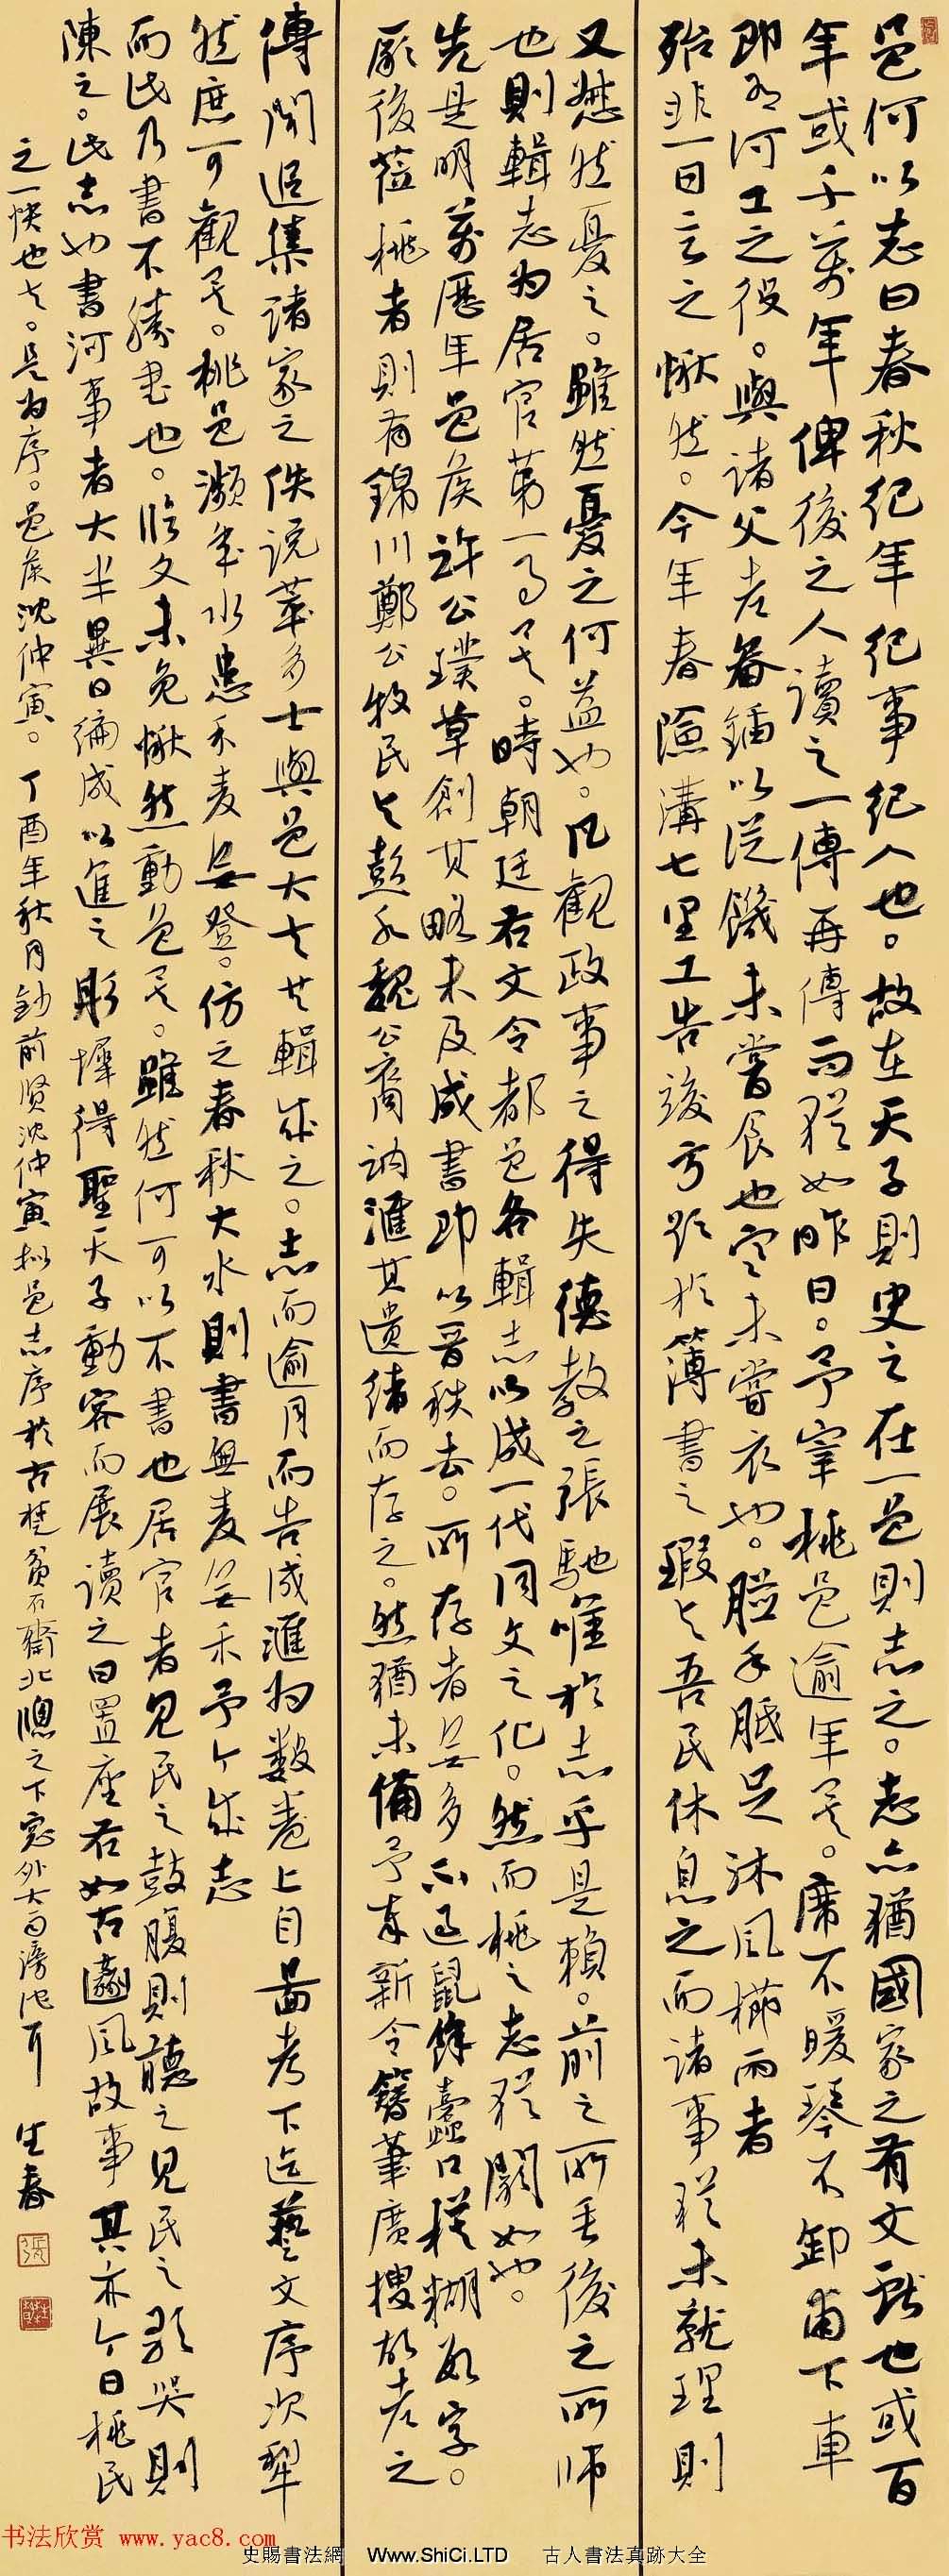 邑何以志曰春秋纪年纪事纪人也。故在天子则史之在一邑则志之。志亦犹國家之有文献也或百
年或千万年俾後之人讀之一傳再傳而犹如昨日。予宰桃邑逾年矣。席不暖琴不卸甫下車
即有河工之役。與诸父老畚锸以从饑未嘗食也寒未嘗衣也。胼手胝足沐风櫛雨者
殆非一日言之愀然。今年春濬溝七里工告竣方臥於簿書之瑕与吾民休息之而诸事犹未就理则
又愀然憂之。雖然憂之何益也。凡觀政事之得失德教之張馳惟於志乎是賴。前之所垂後之所师
也則輯志为居官第一事矣。時朝廷右文令都邑各輯志以成一代同文之化。然而桃之志犹闕如也。
先是明萬曆年邑侯許公璞草創其略未及成書即以晋秩去。所存者無多亦过鼠餘蠹口模糊數字。
厥後蒞桃者則有錦川鄭公牧民与彭永魏公裔讷滙其遗绪而存之。然猶未備予奉新令簪筆廣搜故老之
傳聞追集诸家之佚说萃多士與邑大夫共輯成之。志而逾月而告成滙为数卷上自圖考下迄藝文序次犁
然庶可觀矣。桃邑瀕年水患禾麦無登。仿之春秋大水則書無麦無禾予今成志
而此乃書不勝書也。臨文未免愀然動色矣。雖然何可以不書也居官者見民之鼓腹則聽之見民之歌哭則
陳之。此志也書河事者大半異日編成以進之彤墀得聖天子動容而展讀之曰置座右如古豳风故事其亦今日桃民
之一快也夫。是为序。邑侯沈仲寅。丁酉年秋月鈔前贤沈仲寅桃邑志序於古楚贫石齋北牕之下窓外大雨滂沱耳 生春
书法欣赏 www.yac8.com
史賜書法網 Www.ShiCi.LTD 古人書法真跡大全